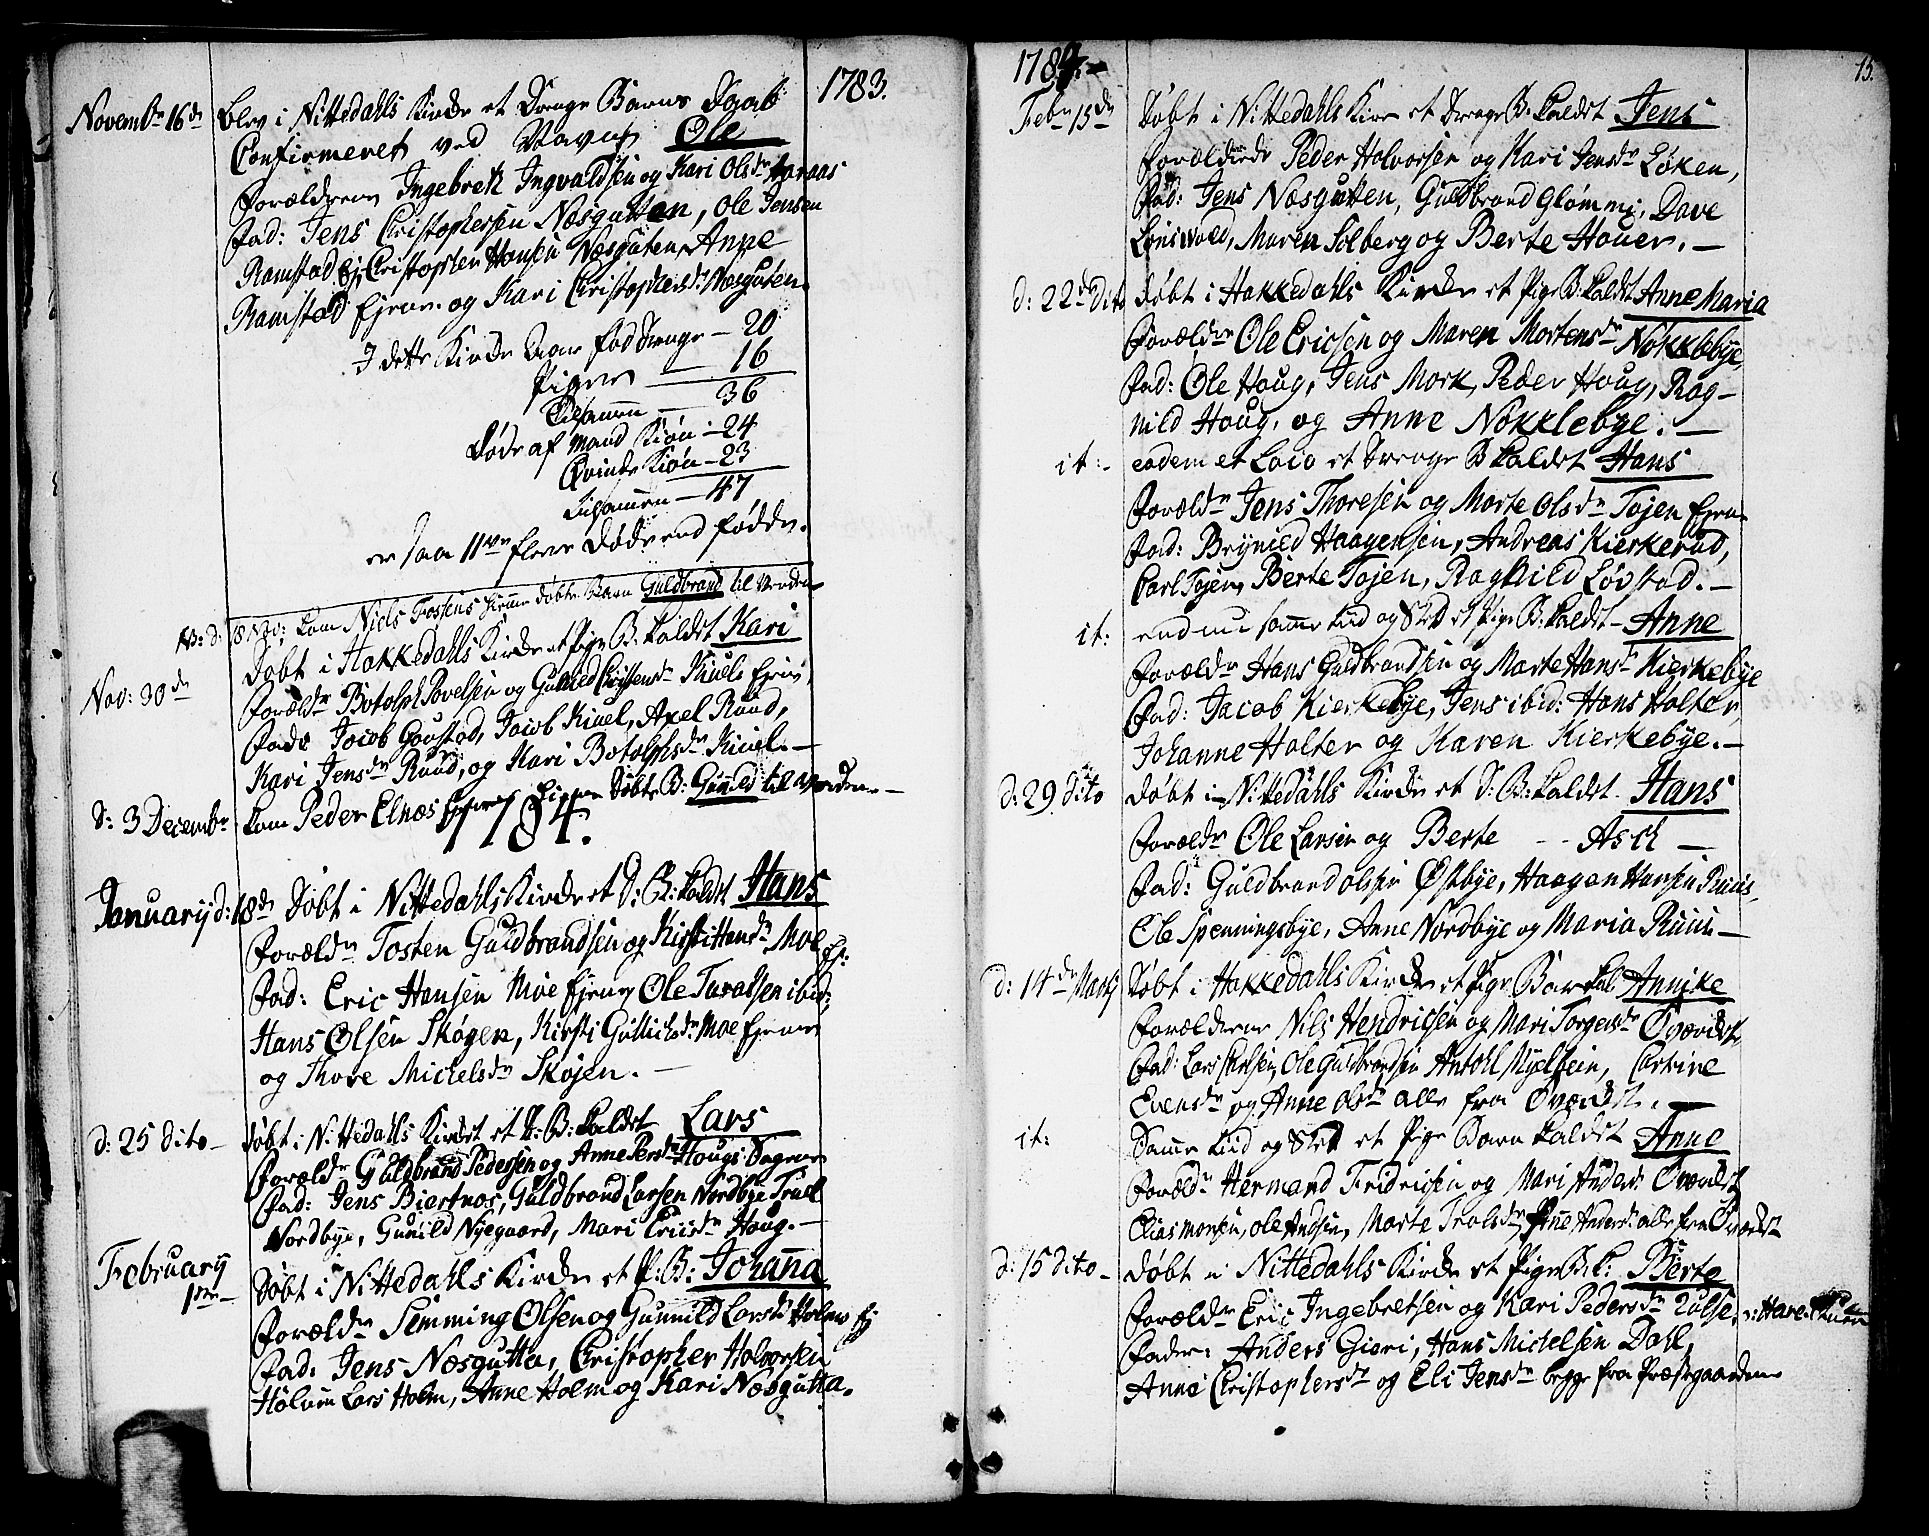 1783.
Novembr 16de Blev i Nittedahls Kirke et Drenge Barns Daab
Confirmeret ved Navnet Ole
Forældrene Ingebret Ingvaldsen og Kari Olsdr Aaraas
Fad: Jens Christophersen Næsgutten, Ole Jensen
Ramstad Ej. Christopher Hansen Næsguten, Anne
Ramstad Ejerne og Kari Christophersdr Næsguten.
I dette Kirke Aar fød Drenge – 20
Piger — 16
Tilsamen — 36
Døde af Mand Kiøn – 24
Qvinde Kiøn – 23
Tilsamen – 47
er saa 11ve flere Døde end fødde.
NB: d: 18 Nov: kom Niels Fossens hieme døbte Barn Guldbrand til Verden
Nov: 30de Døbt i Hakkedahls Kirke et Pige B: kaldet Kari
Forældr Botolph Povelsen og Gunild Ericsensdr Kiuels Ejere,
Fad: Jacob Goustad, Jacob Kiuel, Axel Ruud,
Kari Jensdr Ruud, og Kari Botolphsdr Kiuel. —
D: 3 Decembr kom Peder Elnæs hieme Døbte B: Gunild til Verden. —
1784.
January d: 18de Døbt i Nittedahls Kirke et D: B: kaldet Hans
Forældr Tosten Guldbrandsen og Kirsti Hansdr Moe Ej:
Fad: Eric Hansen Moe Ejer, Ole Turalsen ibid:
Hans Olsen Skøgen, Kirsti Gullichsdr Moe Ejerne
og Thore Michelsdr Skøjen. —
d: 25 dito – Døbt i Nittedahls Kirke et D: B: kaldet Lars
Forældr Guldbrand Pedersen og Anne Persdr Hougs
Fad: Jens Biertnæs, Guldbrand Larsen Nordbye Truel
Nordbye, Gunild Nyegaard, Mari Ericsdr Houg. —
February 1ste – Døbt i Nittedahls Kirke et P: B: Johanna
Forældr Semming Olsen og Gunnild Larsdr Holms Ej
Fad: Jens Næsgutten, Christopher Halvorsen
Holum Lars Holm, Anne Holm og Kari Næsgutta.
15.
1784. –
Febr 15de Døbt i Nittedahls Kirke et Drenge B: kaldet Jens
Forældrene Peder Halvorsen og Kari Jensdr Løken,
Fad: Jens Næsgutten, Guldbrand Glømmi, Dave
Maren Solberg og Berte Houer. —
d: 22de dito Døbt i Hakkedahls Kirke et Pige B: kaldet Anne Maria
Forældr Ole Ericsen og Maren Mortensdr Nøkklebye
Fad: Ole Houg, Jens Mork, Peder Houg, Rag-
nild Houg, og Anne Nøkklebye. —
it: – eodem et Loco et Drenge B kaldet Hans
Forældr Jens Thoresen og Marte Olsdr Tøjen Ejere
Fad: Brynild Haagensen, Andreas Kierkerud,
Carl Tøjen, Berte Tøjen, Raghild Løvstad. —
it: endnu samme tiid og Sted et Pige B: kaldet – Anne
Forældr Hans Guldbrandsen og Marte Hansdr Kierkebye
Fad: Jacob Kierkebye, Jens ibid: Hans Holter,
Johanne Holter og Karen Kierkebye. —
d: 29 dito Døbt i Nittedahls Kirke et D: B: kaldet Hans
Forældr Ole Larsen og Berte – – Asch —
Fad: Guldbrand Olsen Østbye, Haagen Hansen Ruus,
Ole Spenningsbye, Anne Nordbye og Maria Ruus —
d: 14de Martj Døbt i Hakkedahls Kirke et Pige Barn kal: Annike
Forældrene Nils Hendricsen og Mari Torgersdr Øværket,
Fad: Lars Carlsen, Ole Guldbrandsen Catrine
Evensdr og Anne Olsdr alle fra Øværket. —
it: Samme tiid og Sted et Pige Barn kaldet Anne
Forældr Hermand Fridricsen og Mari Anders: Øværket
Elias Monsen, Ole Andsen, Marte Trolsdr, Anne Anders: alle fra Øværket
d: 15 dito – Døbt i Nittedahls Kirke et Pige B k: Berte
Forældr Eric Ingebretsen og Kari Pedersdr
Fadr: Anders Giøri, Hans Michelsen Dahl,
Anne Christophersdr og Eli Jensdr begge fra Præstegaarden